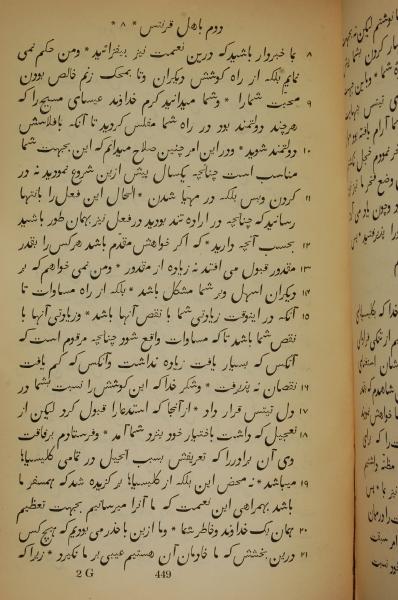 دوم باهل قرنتس * ۸ *
۸ نما خبردار باشید که درین نعمت نیز بیفزائید * ومن حکم نمی
نمایم بلکه از راه کوشش دیگران وتا بمحک زنم خالص بودن
۹ محبت شمارا * وشما میدانید کرم خداوند عیسای مسیح را که
هرچند دولتمند بود در راه شما مفلس کردید تا آنکه بافلاسش
۱۰ دولتمند شوید * ودر این امر چنین صلاح میدانم که این بجهت شما
مناسب است چنانچه یکسال پیش ازین شروع نمودید نه در
۱۱ کردن وبس بلکه در مهیا شدن * الحال این فعل را بانتها
رسانید که چنانچه در اراده تند بودید در فعل نیز بهمان طور باشید
۱۲ بحسب آنچه دارید * که اکر خواهش مقدم باشد هرکس را بقدر
۱۳ مقدور قبول می افتد نه زیاده از مقدور * ومن نمی خواهم که بر
۱۴ دیگران اسهل وبر شما مشکل باشد * بلکه از راه مساوات تا
۱۵ آنکه در اینوقت زیادتی شما با نقص آنها باشد * وزیادتی آنها با
نقص شما باشد تا که مساوات واقع شود چنانچه مرقوم است که
آنکس که بسیار یافت زیاده نداشت وآنکس که کم یافت
۱۶ نقصان نه پذیرفت * وشکر خدا که این کوشش را نسبت بشما در
۱۷ دل تیتس قرار داد * از آنجا که استدعا را قبول کرد لیکن از
۱۸ تعجیل که داشت باختیار خود بنزد شما آمد * وفرستادم برفاقت
وی آن برادر را که تعریفش بسبب انجیل در تمامی کلیسیاها
۱۹ میباشد * نه محض این بلکه از کلیسیاها برکزیده شد که همسفر ما
باشد بهمراهی این نعمت که ما آنرا میرسانیم بجهت تعظیم
۲۰ همان یک خداوند وخاطر شما * وما ازین با حذر می بودیم که هیچ کس
۲۱ درین بخشش که ما خادمان آن هستیم عیبی بر ما نکیرد * زیرا که
2 G 449